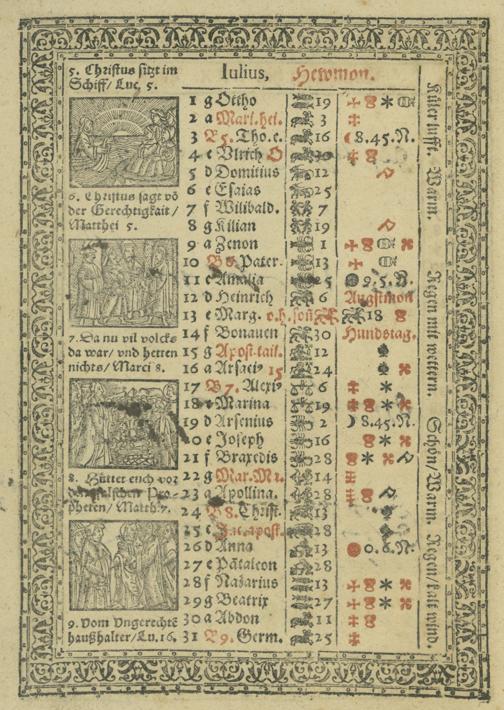 Iulius, Hewmon.
5. Christus sitzt im
Schiff/ Luc. 5.
6. Christus sagt võ
der Gerechtigkait/
Matthei 5.
7. Da nu vil volcks
da war/ vnd hetten
nichts/ Marci 8.
8. Hütter euch vor
Pro-
pheten/ Matth. 7.
9. Vom Vngerechtē
haußhalter/ Lu. 16.
1 g Ottho 19
2 a Mari. hei. 3
3 b 5. Tho. c. 16 8.45.N.
4 c Vlrich
5 d Domitius 12
6 e Esaias 25
7 f Wilibald. 7
8 g Kilian 19
9 a Zenon 1
10 Pater. 13
11 c Amalia 25 9.5.V.
12 d Heinrich 6 Augstmon
13 e Marg. v.h. soñ 18
14 f Bonauen 30 Hundstag.
15 g Apost. tail. 12
16 a Arsaci 15 24
17 7. Alexi 6
18 c Marina 19
19 d Arsenius 2 8.45.N.
20 e Joseph 16
21 f Braxedis 28
22 g Mar. Ma. 14
23 a Apollina. 28
24 8. Christ. 13
25 c Ja. apost. 28
26 d Anna 13 0.6.N.
27 e Pãtaleon 28
28 f Nazarius 13
29 g Beatrix 27
30 a Abdon 11
31 9. Germ. 25
Küler lufft. Warm. Regen mit wettern. Schön/ Warm. Regen/ kalt wind.